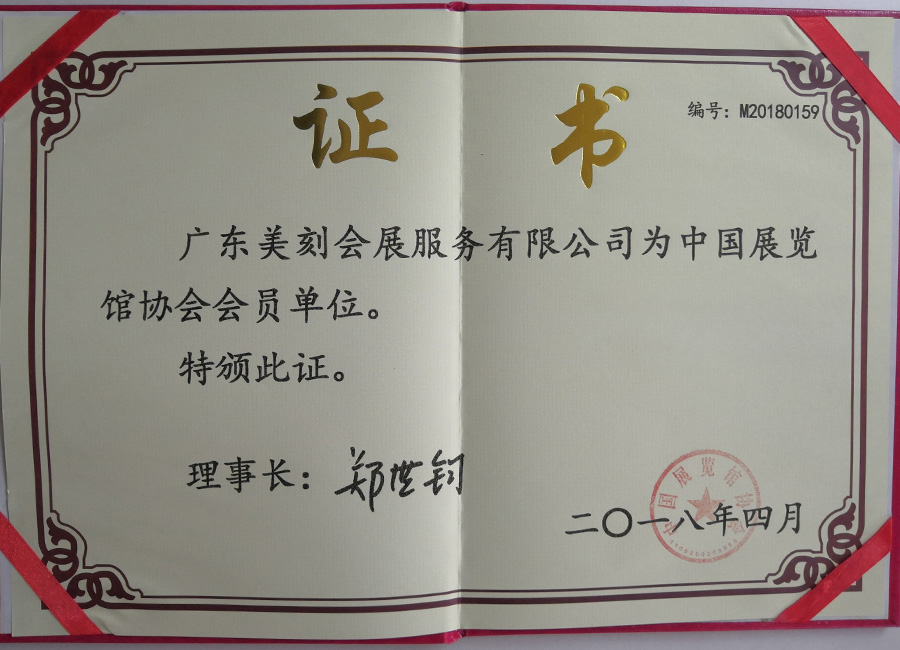 证 书
编号：M20180159
广东美刻会展服务有限公司为中国展览
馆协会会员单位。
特颁此证。
理事长：郑世钧
中国展览馆协会
二〇一八年四月